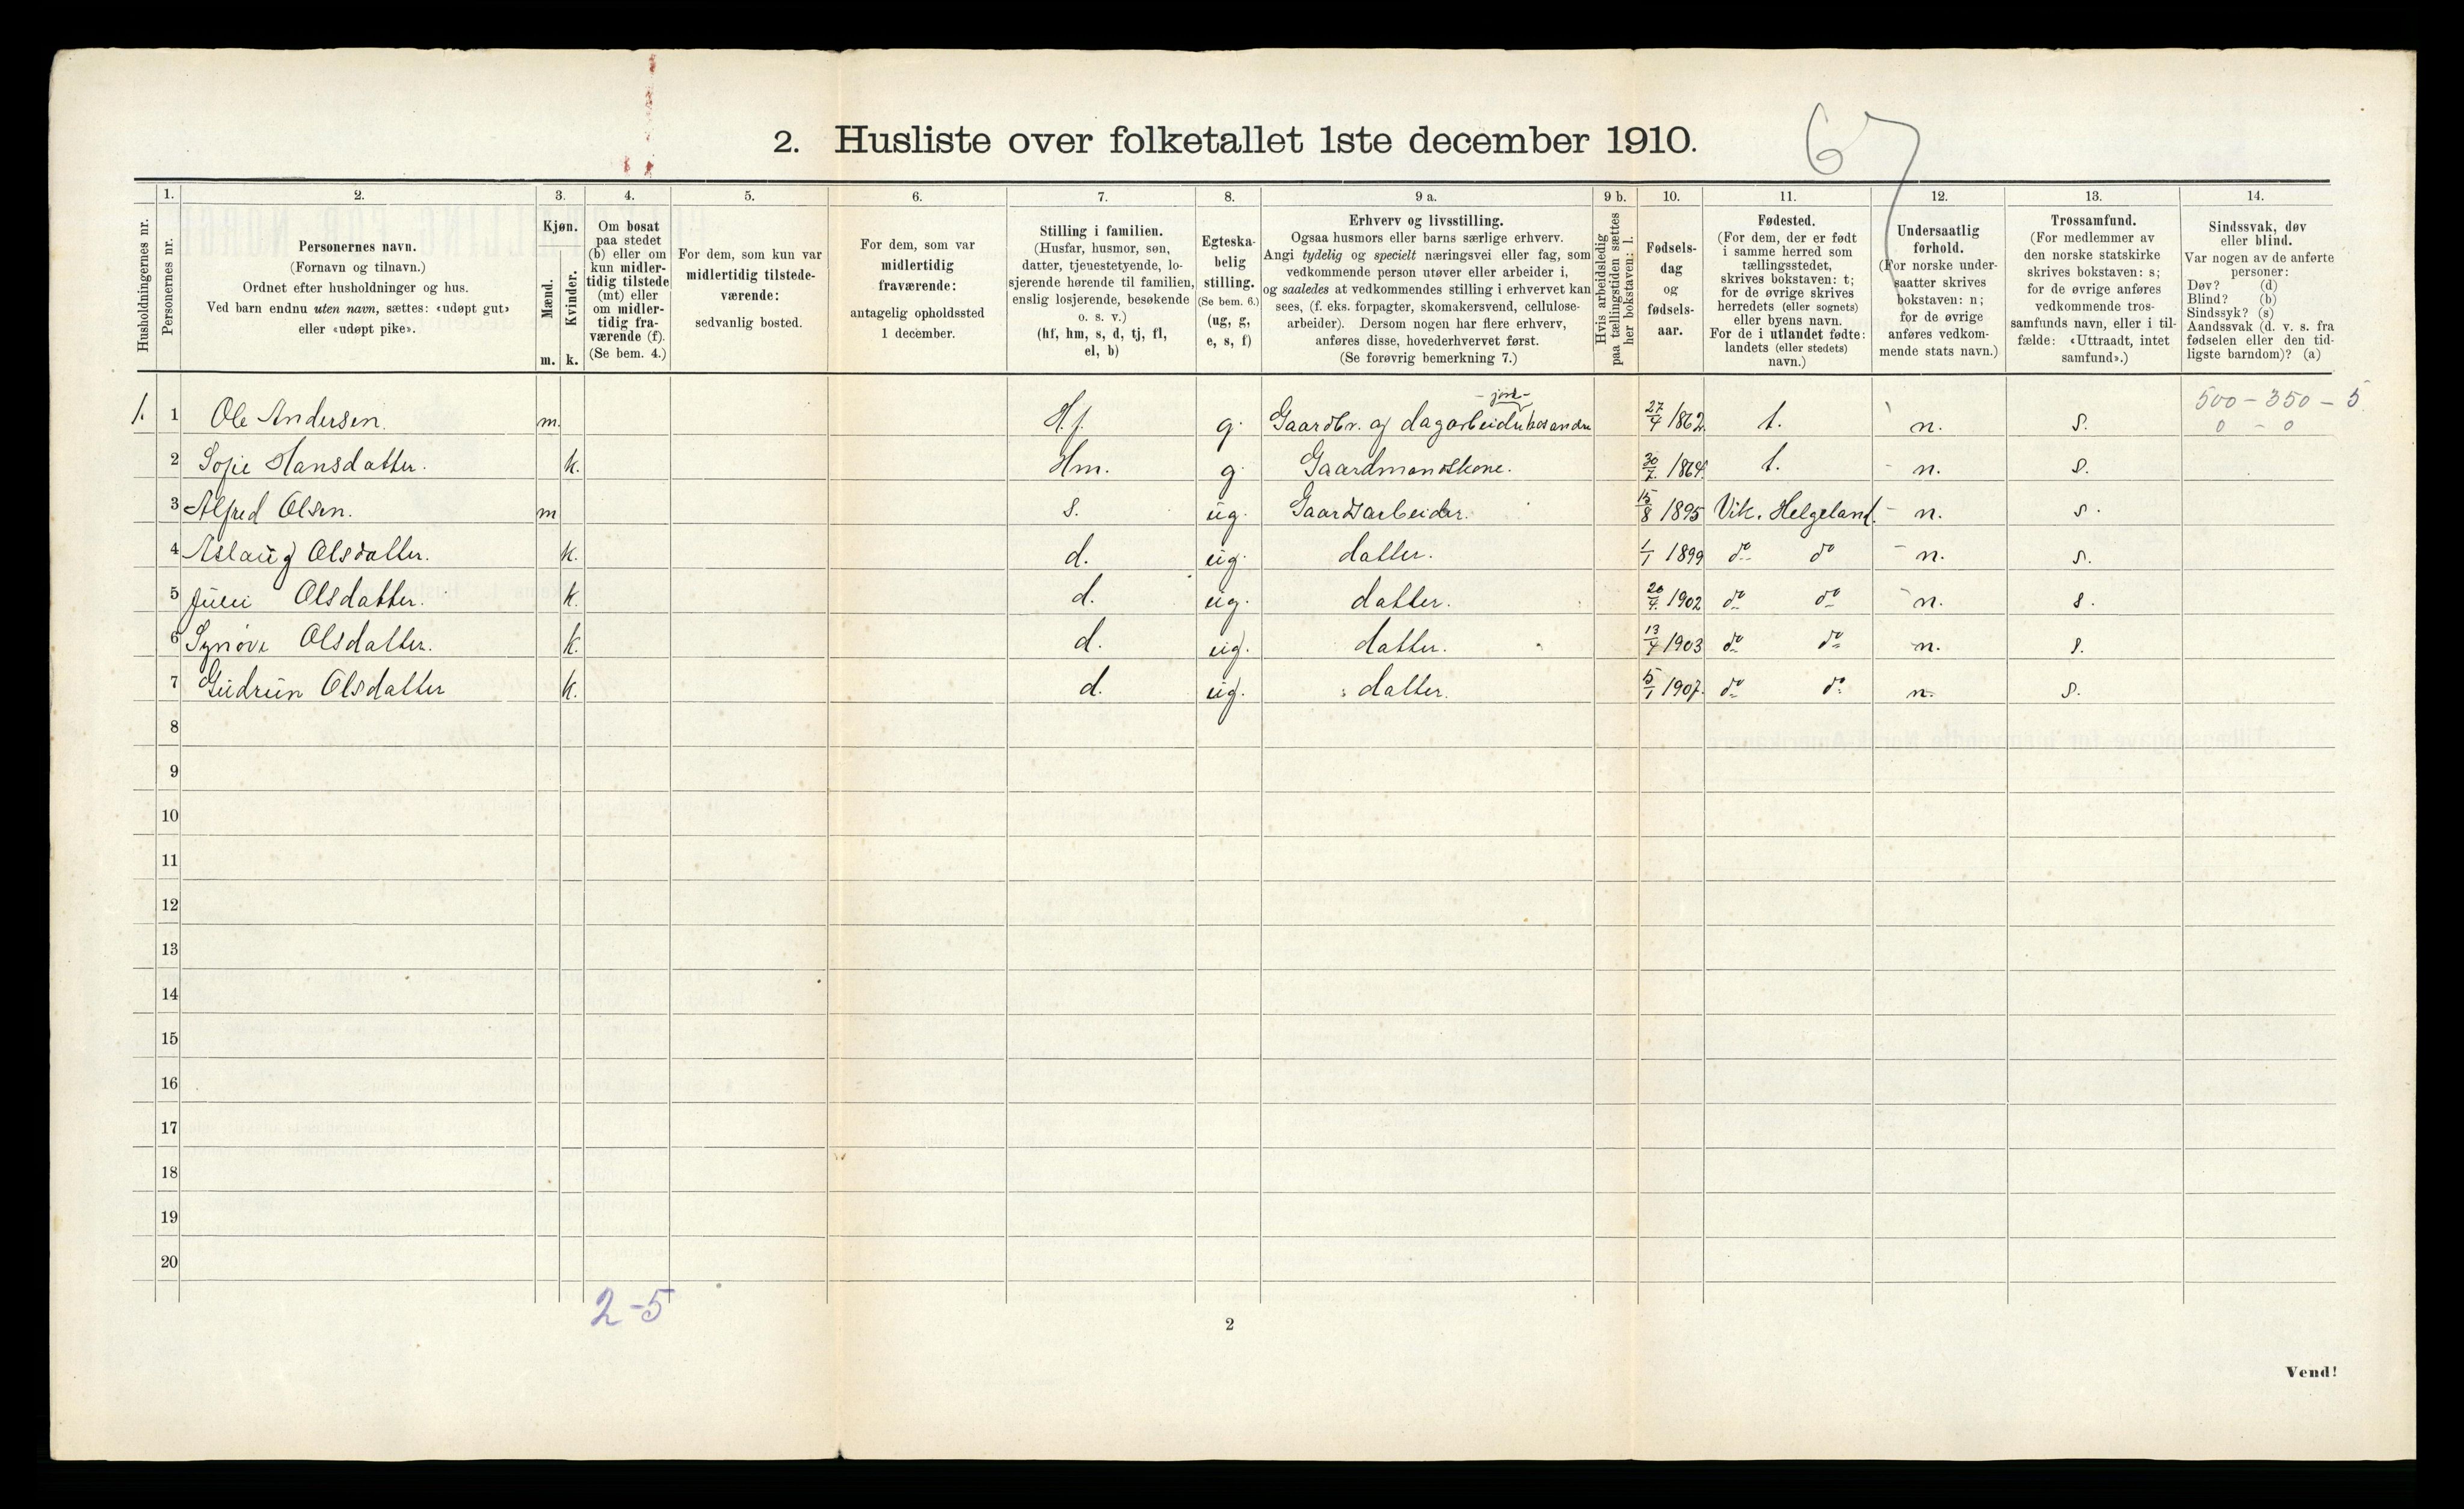 2. Husliste over folketallet 1ste december 1910.
67
Husholdningernes nr.
1.
Personernes nr.
2.
Personernes navn.
(Fornavn og tilnavn.)
Ordnet efter husholdninger og hus.
Ved barn endnu uten navn, sættes: «udøpt gut»
eller «udøpt pike».
3.
Kjøn.
Mænd.
Kvinder.
m. k.
4.
Om bosat
paa stedet
(b) eller om
kun midler-
tidig tilstede
(mt) eller
om midler-
tidig fra-
værende (f).
(Se bem. 4.)
5.
For dem, som kun var
midlertidig tilstede-
værende:
sedvanlig bosted.
6.
For dem, som var
midlertidig
fraværende:
antagelig opholdssted
1 december.
7.
Stilling i familien.
(Husfar, husmor, søn,
datter, tjenestetyende, lo-
sjerende hørende til familien,
enslig losjerende, besøkende
o. s. v.)
(hf, hm, s, d, tj, fl,
el, b)
8.
Egteska-
belig
stilling.
(Se bem. 6.)
(ug, g,
e, s, f)
9 a.
Erhverv og livsstilling.
Ogsaa husmors eller barns særlige erhverv.
Angi tydelig og specielt næringsvei eller fag, som
vedkommende person utøver eller arbeider i,
og saaledes at vedkommendes stilling i erhvervet kan
sees, (f. eks. forpagter, skomakersvend, cellulose-
arbeider). Dersom nogen har flere erhverv,
anføres disse, hovederhvervet først.
(Se forøvrig bemerkning 7.)
9 b.
Hvis arbeidsledig
paa tællingstiden sættes
her bokstaven: l.
10.
Fødsels-
dag
og
fødsels-
aar.
11.
Fødested.
(For dem, der er født
i samme herred som
tællingsstedet,
skrives bokstaven: t;
for de øvrige skrives
herredets (eller sognets)
eller byens navn.
For de i utlandet fødte:
landets (eller stedets)
navn.)
12.
Undersaatlig
forhold.
(For norske under-
saatter skrives
bokstaven: n;
for de øvrige
anføres vedkom-
mende stats navn.)
13.
Trossamfund.
(For medlemmer av
den norske statskirke
skrives bokstaven: s;
for de øvrige anføres
vedkommende tros-
samfunds navn, eller i til-
fælde: «Uttraadt, intet
samfund».)
14.
Sindssvak, døv
eller blind.
Var nogen av de anførte
personer:
Døv? (d)
Blind? (b)
Sindssyk? (s)
Aandssvak (d. v. s. fra
fødselen eller den tid-
ligste barndom)? (a)
- jord - 500 - 350 - 5
1. 1 Ole Andersen. m. H.f. g. Gaardbr. og dagarbeider hos andre 27/4 1862. t. n. s. 0 - 0
2 Sofie Hansdatter. k. Hm. g. Gaardmandskone. 30/7. 1864. t. n. s.
3 Alfred Olsen. m s. ug. Gaardsarbeider. 15/8 1895 Vik. Helgeland. n. s.
4 Aslaug Olsdatter. k. d. ug. datter. 1/1 1899 do do n. s.
5 Olsdatter. k. d. ug. datter. 20/4. 1902 do do n. s.
6 Synøve Olsdatter. k. d. ug. datter. 13/4 1903 do do n. s.
7 Gudrun Olsdatter k. d. ug. datter. 5/1 1907. do do n. s.
8
9
10
11
12
13
14
15
16
17
18
19
20
2-5
2
Vend!